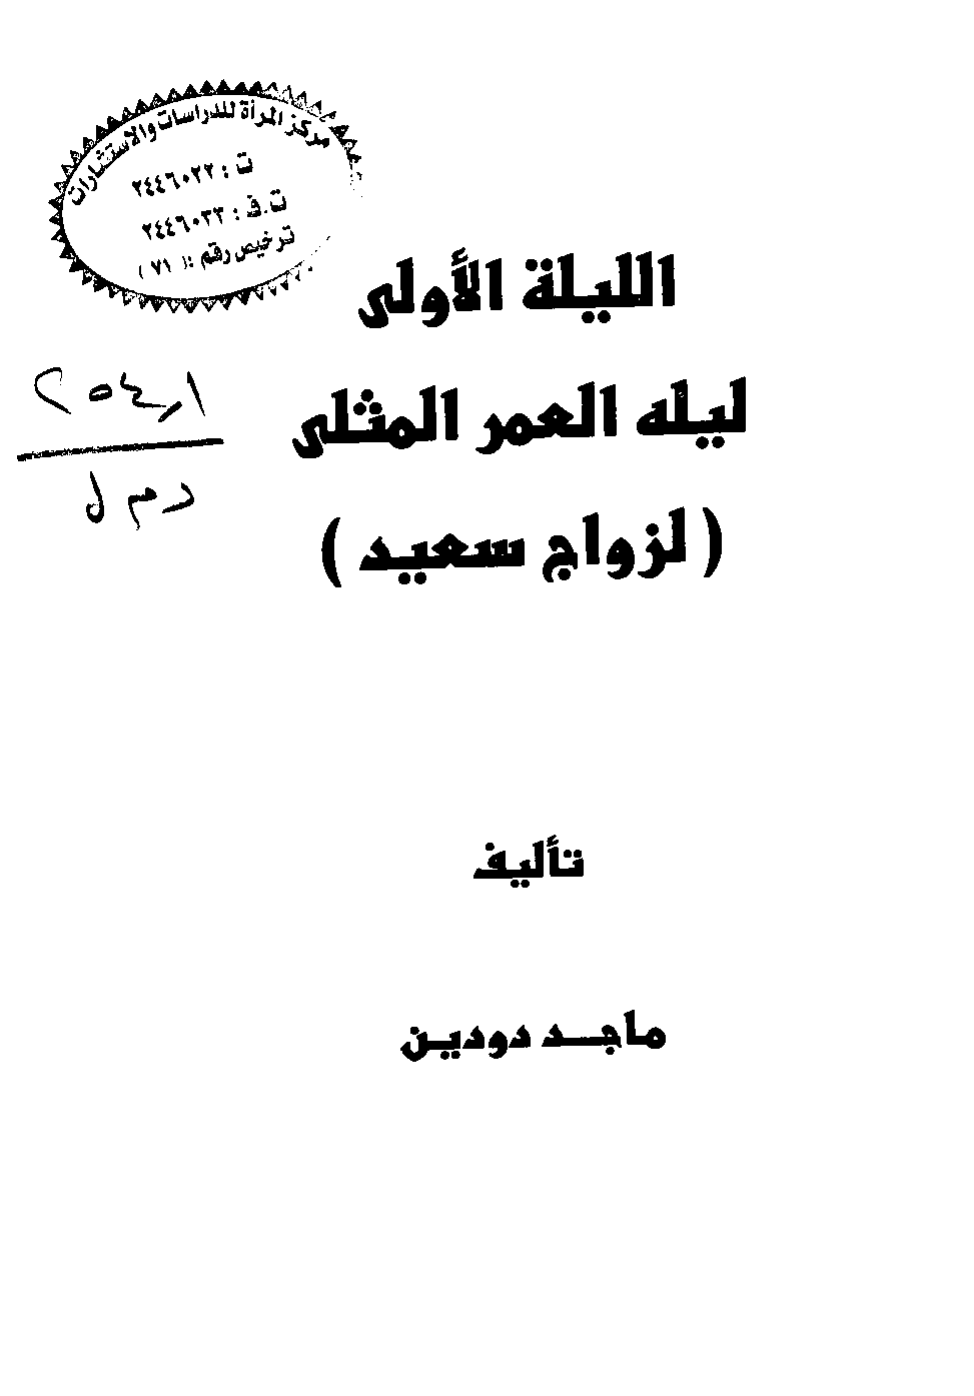 مركز المرأة للدراسات والاستشارات
ت : ٢٤٤٦٠٢٢
ت.ف : ٢٤٤٦٠٣٣
ترخيص رقم : ( ٧١ )
الليلة الأولى
ليله العمر المثلى
( لزواج سعيد )
د م ل
تأليف
ماجد دودين